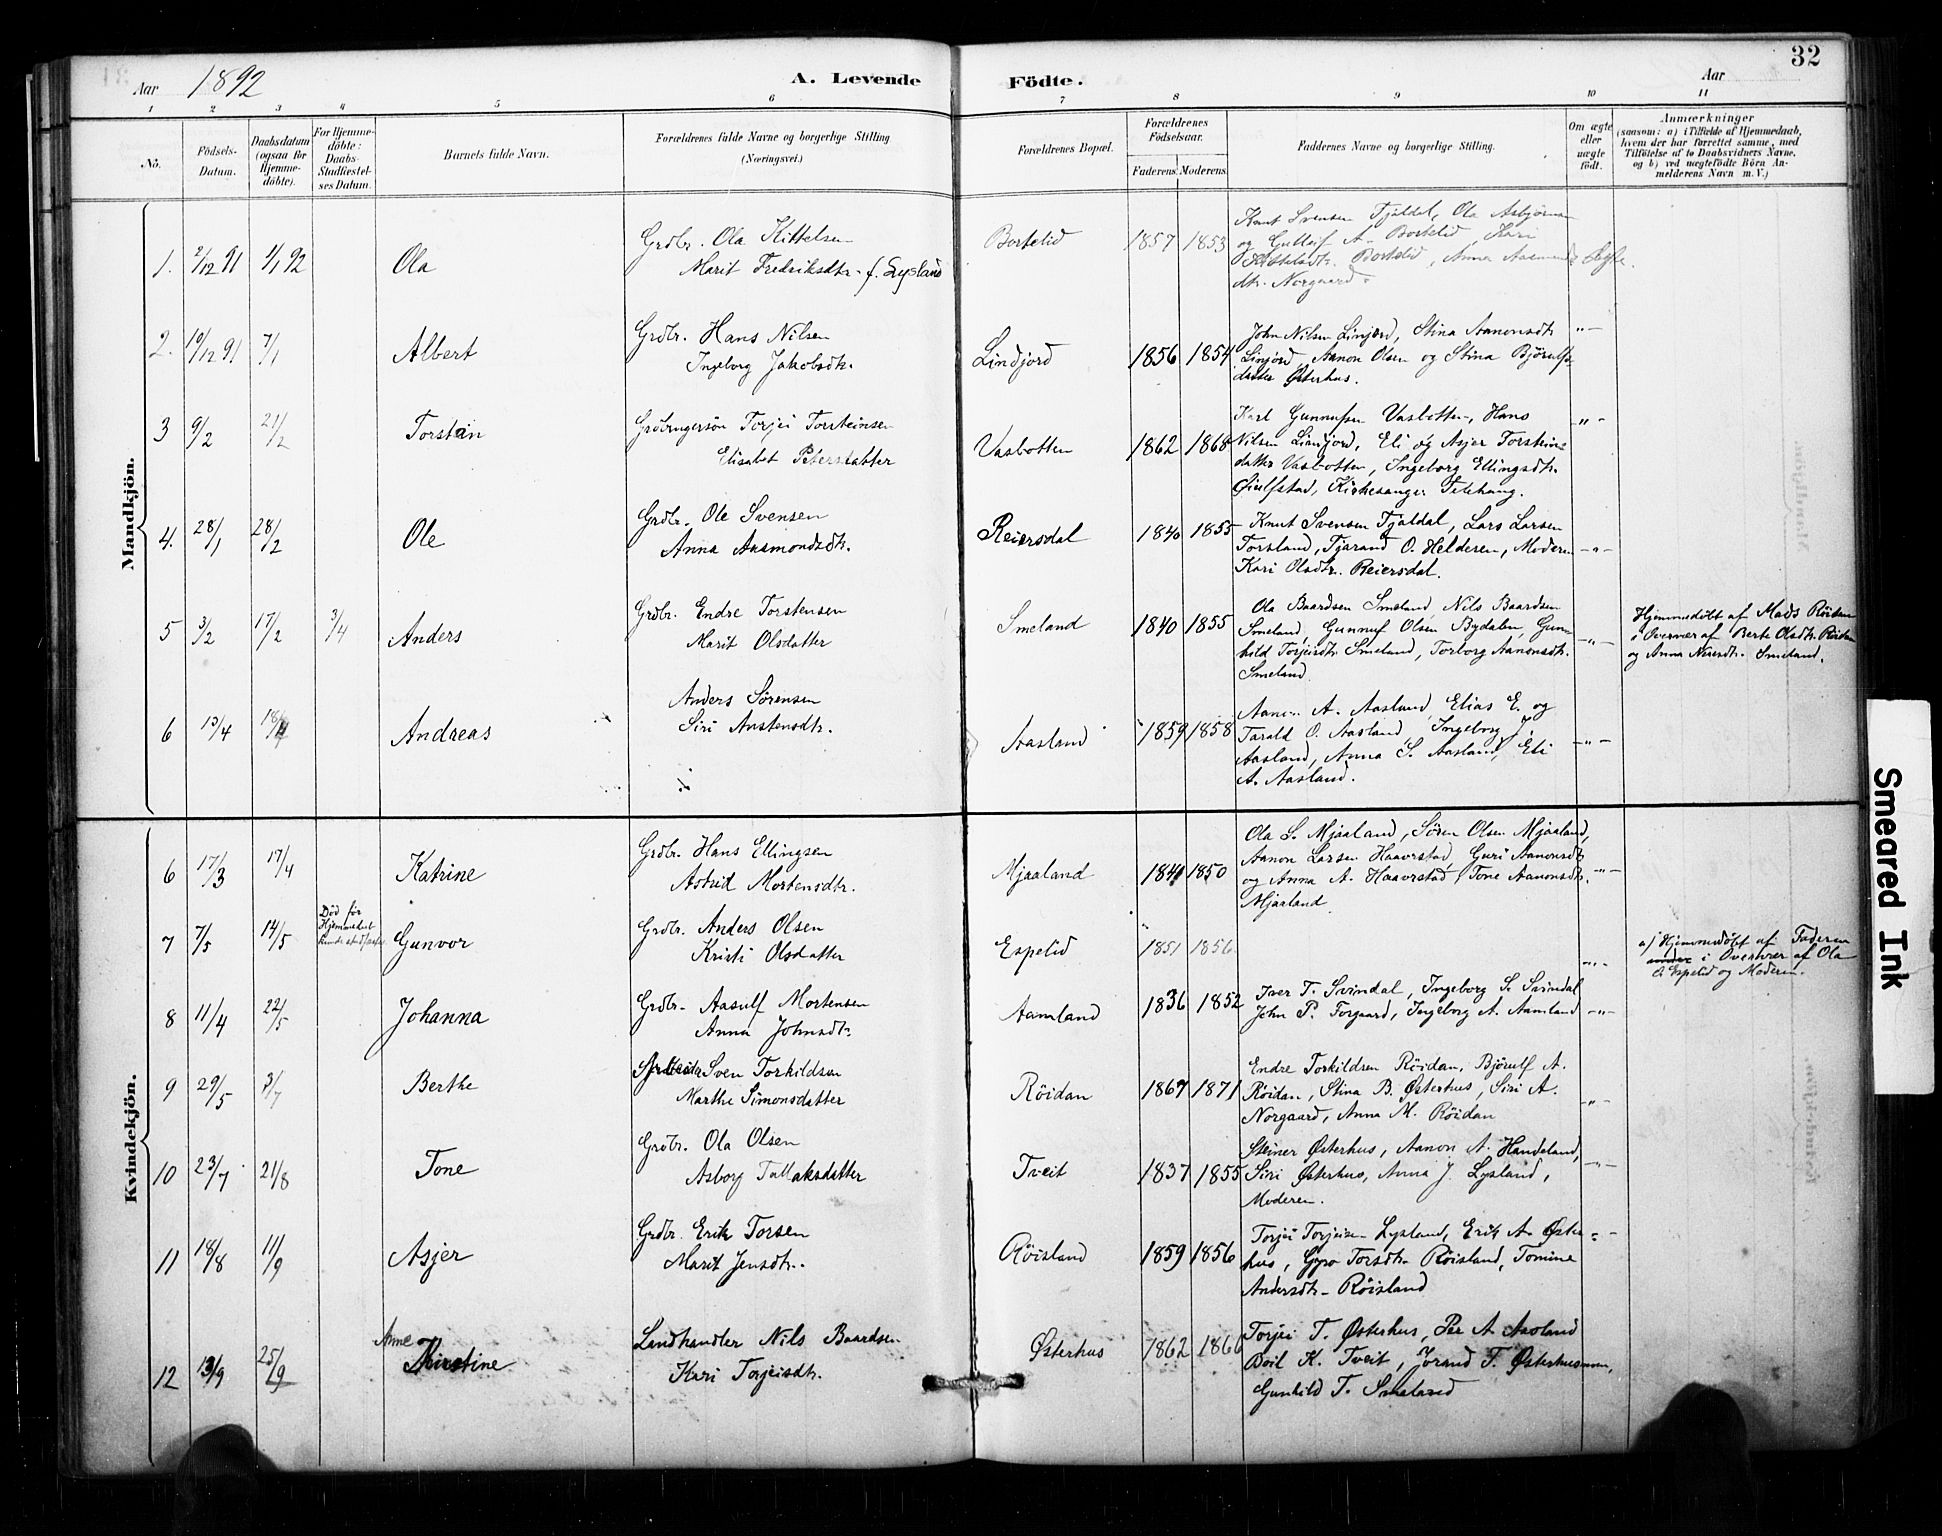 32
Aar 1892
A. Levende Födte.
Aar
1 2 3 4 5 6 7 8 9 10 11
No.
Födsels-Datum.
Daabsdatum (ogsaa for Hjemme-döbte).
For Hjemme-döbte: Daabs-Stadfæstel-ses Datum.
Barnets fulde Navn.
Forældrenes fulde Navne og borgerlige Stilling (Næringsvei.)
Forældrenes Bopæl.
Forældrenes Födselsaar.
Faderens. Moderens.
Faddernes Navne og borgerlige Stilling.
Om ægte eller uægte födt.
Anmærkninger
(saasom: a) i Tilfælde af Hjemmedaab, hvem der har forrettet samme, med Tilföielse af to Daabsvidners Navne, og b) ved uægtefödte Börn An-melderens Navn m. V.)
Mandkjön.
1. 2/12 91 1/1 92 Ola
Grdbr. Ola Kittelsen
Marit Fredriksdtr. f. Lysland
Bortelid 1857 1853
Knut Svensen Fjaldal, Ola Asbjörnsen
og Gulleif A. Bortelid, Kari
Kittelsdtr. Bortelid, Anna Aasmunds
dtr. Norgaard.
Ægte.
2. 19/12 91 7/1 Albert
Grdbr. Hans Nilsen
Ingeborg Jakobsdtr.
Lindjord 1856 1854
John Nilsen Linjord, Stina Aanonsdtr
Linjord, Aanon Olsen og Stina Björulfs-
datter Østerhus.
"
3 9/2 21/2 Torstein
Grdbrugersön Torjei Torsteinsen
Elisabet Petersdatter
Vasbotten 1862 1868
Karl Gunnufsen Vasbotten, Hans
Nilsen Linjord, Eli og Asjer Torsteins
datter Vasbotten, Ingeborg Ellingsdtr.
Øiulfstad, Kirkesanger Telehaug.
"
4. 28/1 28/2 Ole
Grdbr. Ole Svensen
Anna Aasmondsdtr.
Reiersdal 1840 1855
Knut Svensen Fjaldal, Lars Larsen
Torsland, Tjarand O. Helderen, Moderen
Kari Olsdtr. Reiersdal.
"
5 3/2 17/2 3/4 Anders
Grdbr. Endre Torstensen
Marit Olsdatter
Smeland 1840 1855
Ola Baardsen Smeland, Nils Baardsen
Smeland, Gunnuf Olsen Bydalen, Gunn
hild Torjeisdtr. Smeland, Torborg Aanonsdtr.
Smeland.
"
Hjemmedöbt af Mads Röidan
i Overvær af Berte Olsdtr. Röidan
og Anna Smeland.
6 13/4 18/4 Andreas
Anders Sörensen
Siri Anstensdtr.
Aasland 1859 1858
Aanon A. Aasland, Elias E. og
Tarald O. Aasland, Ingeborg J.
Aasland, Anna S. Aasland, Eli
A. Aasland.
"
Kvindekjön.
6 17/3 17/4 Katrine
Grdbr. Hans Ellingsen
Astrid Mortensdtr.
Mjaaland 1841 1850
Ola S. Mjaaland, Sören Olsen Mjaaland,
Aanon Larsen Haaverstad, Guri Aanonsdtr
og Anna A. Haaverstad, Tone Aanonsdtr.
Mjaaland.
"
7 7/5 14/5 Död før Hjemmedaab kunde stadfæstes Gunvor
Grdbr. Anders Olsen
Kristi Olsdatter
Espelid 1851 1856
"
a) Hjemmedöbt af Faderen
i Overvær af Ola
O. Espelid og Moderen.
8 11/4 22/5 Johanna
Grdbr. Aasulf Mortensen
Anna Johnsdtr.
Aamland 1836 1852
Iver T. Svindal, Ingeborg S. Svindal
John P. Forgaard, Ingeborg A. Aamland
"
9 29/5 3/7 Berthe
Arbeider Sven Torkildsen
Marthe Simonsdatter
Röidan 1867 1871
Endre Torkildsen Röidan, Björulf A.
Röidan, Stina B. Østerhus, Siri A.
Norgaard, Anna M. Röidan
"
10 23/7 21/8 Tone
Grdbr. Ola Olsen
Asborg Tallaksdatter
Tveit 1837 1855
Steiner Østerhus, Aanon A. Handeland,
Siri Østerhus, Anna J. Lysland,
Moderen.
"
11 18/8 11/9 Asjer
Grdbr. Erik Torsen
Marit Jensdtr.
Röisland 1859 1856
Torjei Torjeisen Lysland, Erik A. Øster
hus, Gyro Torsdtr. Röisland, Tomine
Andersdtr. Röisland
"
12 13/9 25/9 Anne Kirstine
Landhandler Nils Baardsen
Kari Torjeisdtr.
Østerhus 1862 1866
Torjei T. Østerhus, Per A. Aasland
Boil K. Tveit, Jorand T. Østerhus,
Gunhild T. Smeland
"
Smeared Ink